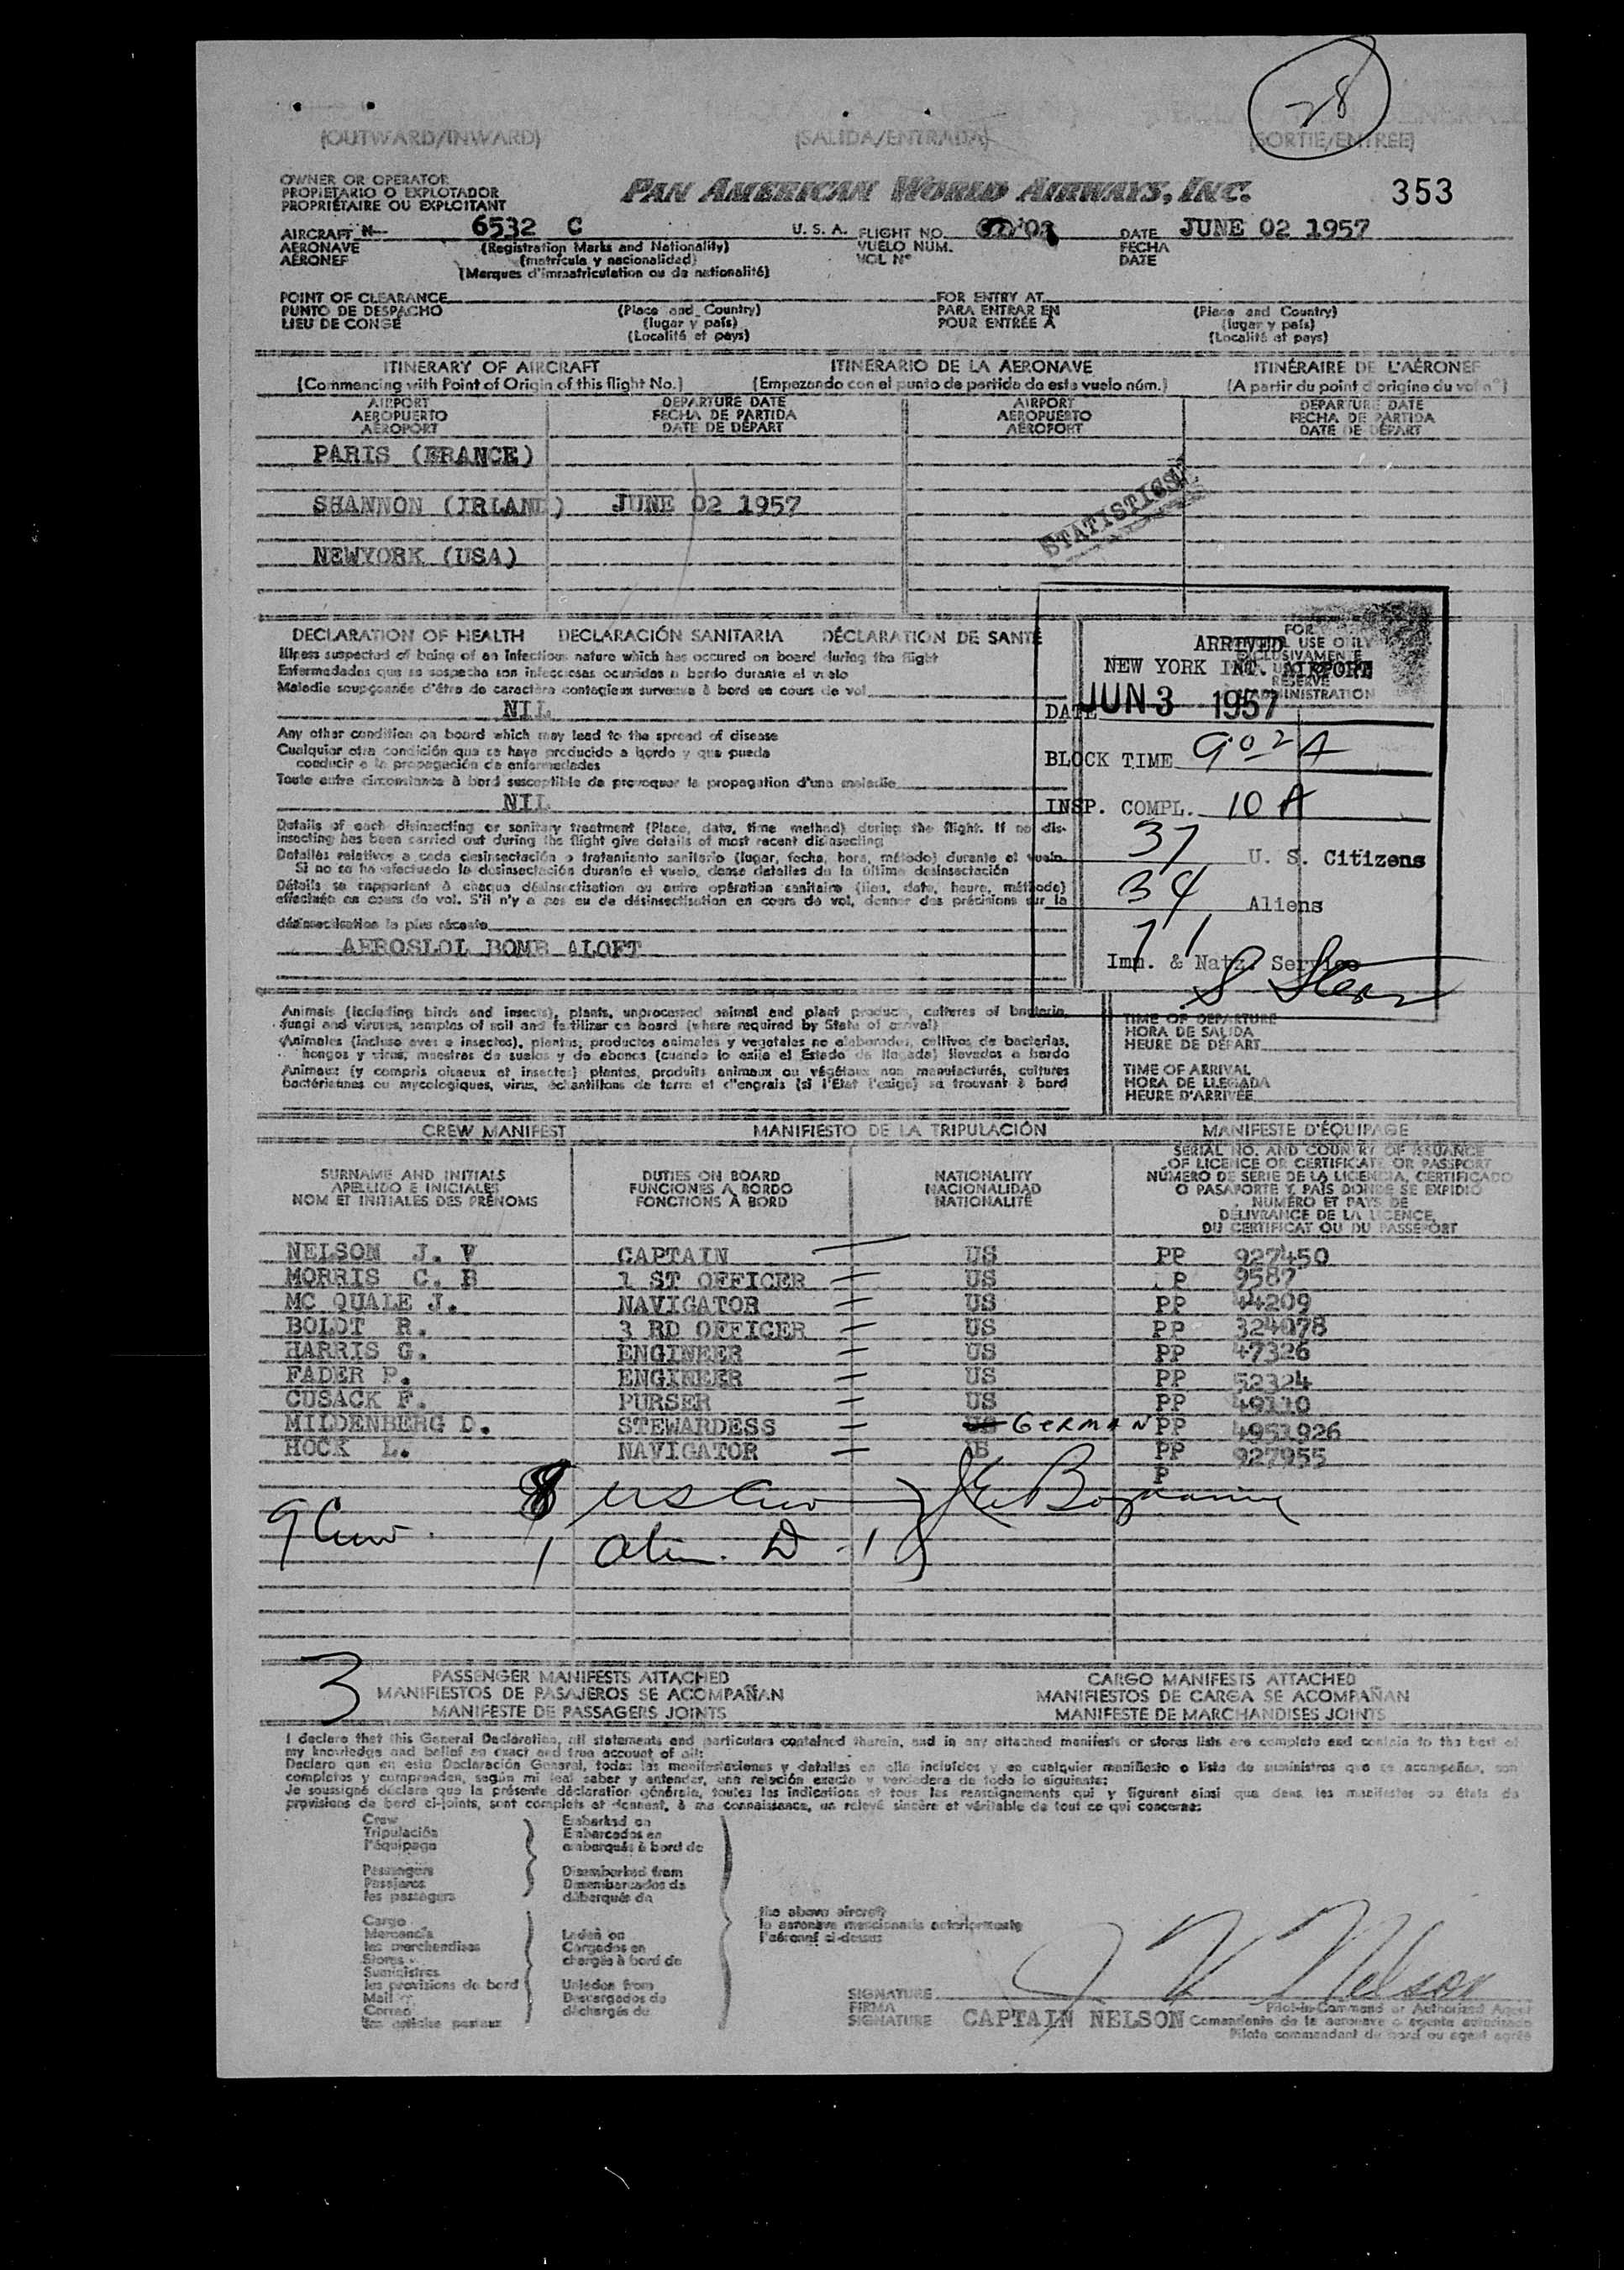 28
(OUTWARD/INWARD) (SALIDA/ENTRADA) (SORTIE/ENTREE)
OWNER OR OPERATOR
PROPIETARIO O EXPLOTADOR
PROPRIÉTAIRE OU EXPLOITANT
PAN AMERICAN WORLD AIRWAYS, INC. 353
AIRCRAFT N- 6532 C U. S. A. FLIGHT NO. DATE JUNE 02 1957
AERONAVE (Registration Marks and Nationality) VUELO NÚM. FECHA
AÉRONEF (matrícula y nacionalidad) VOL Nº DATE
(Marques d'immatriculation ou de nationalité)
POINT OF CLEARANCE FOR ENTRY AT
PUNTO DE DESPACHO (Place and Country) PARA ENTRAR EN (Place and Country)
LIEU DE CONGÉ (lugar y país) POUR ENTRÉE À (lugar y país)
(Localité et pays) (Localité et pays)
ITINERARY OF AIRCRAFT ITINERARIO DE LA AERONAVE ITINÉRAIRE DE L'AÉRONEF
(Commencing with Point of Origin of this flight No.) (Empezando con el punto de partida de este vuelo núm.) (A partir du point d'origine du vol nº)
AIRPORT DEPARTURE DATE AIRPORT DEPARTURE DATE
AEROPUERTO FECHA DE PARTIDA AEROPUERTO FECHA DE PARTIDA
AÉROPORT DATE DE DÉPART AÉROPORT DATE DE DÉPART
PARIS (FRANCE)
STATISTICS
SHANNON (IRLAND) JUNE 02 1957
NEWYORK (USA)
DECLARATION OF HEALTH DECLARACIÓN SANITARIA DÉCLARATION DE SANTÉ
Illness suspected of being of an infectious nature which has occured on board during the flight
Enfermedades que se sospecha son infecciosas ocurridas a bordo durante el vuelo
Maladie soupçonnée d'être de caractère contagieux survenue à bord en cours de vol
NIL
Any other condition on board which may lead to the spread of disease
Cualquier otra condición que se haya producido a bordo y que pueda
conducir a la propagación de enfermedades
Toute autre circonstance à bord susceptible de provoquer la propagation d'une maladie
NIL
Details of each disinsecting or sanitary treatment (Place, date, time method) during the flight. If no dis-
insecting has been carried out during the flight give details of most recent disinsecting
Detalles relativos a cada desinsectación o tratamiento sanitario (lugar, fecha, hora, método) durante el vuelo.
Si no se ha efectuado la desinsectación durante el vuelo, dense detalles de la última desinsectación
Détails se rapportent à chaque désinsectisation ou autre opération sanitaire (lieu, date, heure, méthode)
effectuée en cours de vol. S'il n'y a pas eu de désinsectisation en cours de vol, donner des précisions sur la
désinsectisation la plus récente
AEROSLOL BOMB ALOFT
ARRIVED
NEW YORK INT. AIRPORT
DATE JUN 3 1957
BLOCK TIME 9:02 A
INSP. COMPL. 10 A
37 U. S. Citizens
34 Aliens
71
Imm. & Natz. Service
Animals (including birds and insects), plants, unprocessed animal and plant products, cultures of bacteria,
fungi and viruses, samples of soil and fertilizer on board (where required by State of arrival)
Animales (incluso aves e insectos), plantas, productos animales y vegetales no elaborados, cultivos de bacterias,
hongos y virus, muestras de suelos y de abonos (cuando lo exija el Estado de llegada) llevados a bordo
Animaux (y compris oiseaux et insectes) plantes, produits animaux ou végétaux non manufacturés, cultures
bactériennes ou mycologiques, virus, échantillons de terre et d'engrais (si l'État l'exige) se trouvant à bord
TIME OF DEPARTURE
HORA DE SALIDA
HEURE DE DÉPART
TIME OF ARRIVAL
HORA DE LLEGADA
HEURE D'ARRIVÉE
CREW MANIFEST MANIFIESTO DE LA TRIPULACIÓN MANIFESTE D'ÉQUIPAGE
SURNAME AND INITIALS DUTIES ON BOARD NATIONALITY
APELLIDO E INICIALES FUNCIONES A BORDO NACIONALIDAD
NOM ET INITIALES DES PRÉNOMS FONCTIONS À BORD NATIONALITÉ
SERIAL NO. AND COUNTRY OF ISSUANCE
OF LICENCE OR CERTIFICATE OR PASSPORT
NÚMERO DE SERIE DE LA LICENCIA, CERTIFICADO
O PASAPORTE Y PAÍS DONDE SE EXPIDIÓ
NUMÉRO ET PAYS DE
DÉLIVRANCE DE LA LICENCE
DU CERTIFICAT OU DU PASSEPORT
NELSON J. V CAPTAIN US PP 927450
MORRIS C. B 1 ST OFFICER US P 9587
MC QUALE J. NAVIGATOR US PP 44209
BOLDT R. 3 RD OFFICER US PP 324078
HARRIS G. ENGINEER US PP 47326
FADER P. ENGINEER US PP 52324
CUSACK F. PURSER US PP 49110
MILDENBERG D. STEWARDESS US GERMAN PP 4951926
HOCK L. NAVIGATOR PP 927955
P
8 US Crew
9 Crew. 1 D-1
3 PASSENGER MANIFESTS ATTACHED CARGO MANIFESTS ATTACHED
MANIFIESTOS DE PASAJEROS SE ACOMPAÑAN MANIFIESTOS DE CARGA SE ACOMPAÑAN
MANIFESTE DE PASSAGERS JOINTS MANIFESTE DE MARCHANDISES JOINTS
I declare that this General Declaration, all statements and particulars contained therein, and in any attached manifests or stores lists are complete and contain to the best of
my knowledge and belief an exact and true account of all:
Declaro que en esta Declaración General, todas las manifestaciones y detalles en ella incluídos y en cualquier manifiesto o lista de suministros que se acompañan, son
completos y comprenden, según mi leal saber y entender, una relación exacta y verdadera de todo lo siguiente:
Je soussigné déclare que la présente déclaration générale, toutes les indications et tous les renseignements qui y figurent ainsi que dans les manifestes ou états de
provisions de bord ci-joints, sont complets et donnent, à ma connaissance, un relevé sincère et véritable de tout ce qui concerne:
Crew Embarked on
Tripulación Embarcados en
l'équipage embarqués à bord de
Passengers Disembarked from
Pasajeros Desembarcados de
les passagers débarqués de
the above aircraft
la aeronave mencionada anteriormente
l'aéronef ci-dessus
Cargo
Mercancía Laden on
les marchandises Cargados en
Stores chargés à bord de
Suministros
les provisions de bord Unladen from
Mail Descargados de
Correo déchargés de
les articles postaux
J V Nelson
SIGNATURE Pilot-in-Command or Authorized Agent
FIRMA
SIGNATURE CAPTAIN NELSON Comandante de la aeronave o agente autorizado
Pilote commandant de bord ou agent agréé